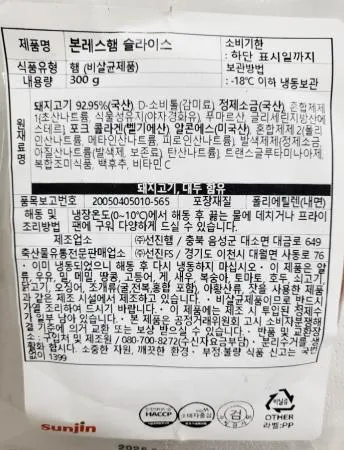 제품명 본레스햄 슬라이스
소비기한 : 하단 표시일까지
식품유형 햄 (비살균제품)
보관방법 : -18℃ 이하 냉동보관
내용량 300 g
원재료명
돼지고기 92.95%(국산), D-소비톨(감미료), 정제소금(국산), 혼합제제
1(초산나트륨, 식물성유지(야자경화유), 푸마르산, 글리세린지방산에
스테르), 포크 콜라겐(벨기에산), 알콘에스(미국산), 혼합제제2(폴리
인산나트륨, 메타인산나트륨, 피로인산나트륨), 발색제제(정제소금,
아질산나트륨(발색제, 보존료), 탄산나트륨), 트랜스글루타미나아제,
복합조미식품, 백후추, 비타민C
돼지고기, 대두 함유
품목보고번호 20050405010-565 포장재질 폴리에틸렌(내면)
해동 및 조리방법
냉장온도(0~10℃)에서 해동 후 끓는 물에 데치거나 프라이
팬에 구워 다양하게 드실 수 있습니다.
제조업소 ㈜선진햄 / 충북 음성군 대소면 대금로 649
축산물유통전문판매업소 ㈜선진FS / 경기도 이천시 대월면 사동로 76
· 이미 냉동되었으니 해동 후 다시 냉동하지 마십시오 · 이 제품은 알
류, 우유, 메밀, 땅콩, 밀, 고등어, 게, 새우, 복숭아, 토마토, 호두, 쇠고기,
닭고기, 오징어, 조개류(굴,전복,홍합 포함), 아황산류, 잣을 사용한 제품
과 같은 제조 시설에서 제조하고 있습니다. · 비살균제품이므로 반드시
가열 조리하여 드시기 바랍니다. · 이 제품에는 제조 시 투입된 정제수
가 일부 남아 있습니다. · 본 제품은 공정거래위원회 고시 소비자분쟁해
결 기준에 의거 교환 또는 보상 받으실 수 있습니다. · 반품 및 교환장
소: 구입처 및 제조원 / 080-700-8272(수신자요금부담) · 분리수거를 생
활화 합시다. 소중한 자원, 깨끗한 환경 · 부정 불량 식품 신고는 국번
없이 1399
HACCP
소비자중심
검
비닐류
OTHER
라벨:PP
sunjin